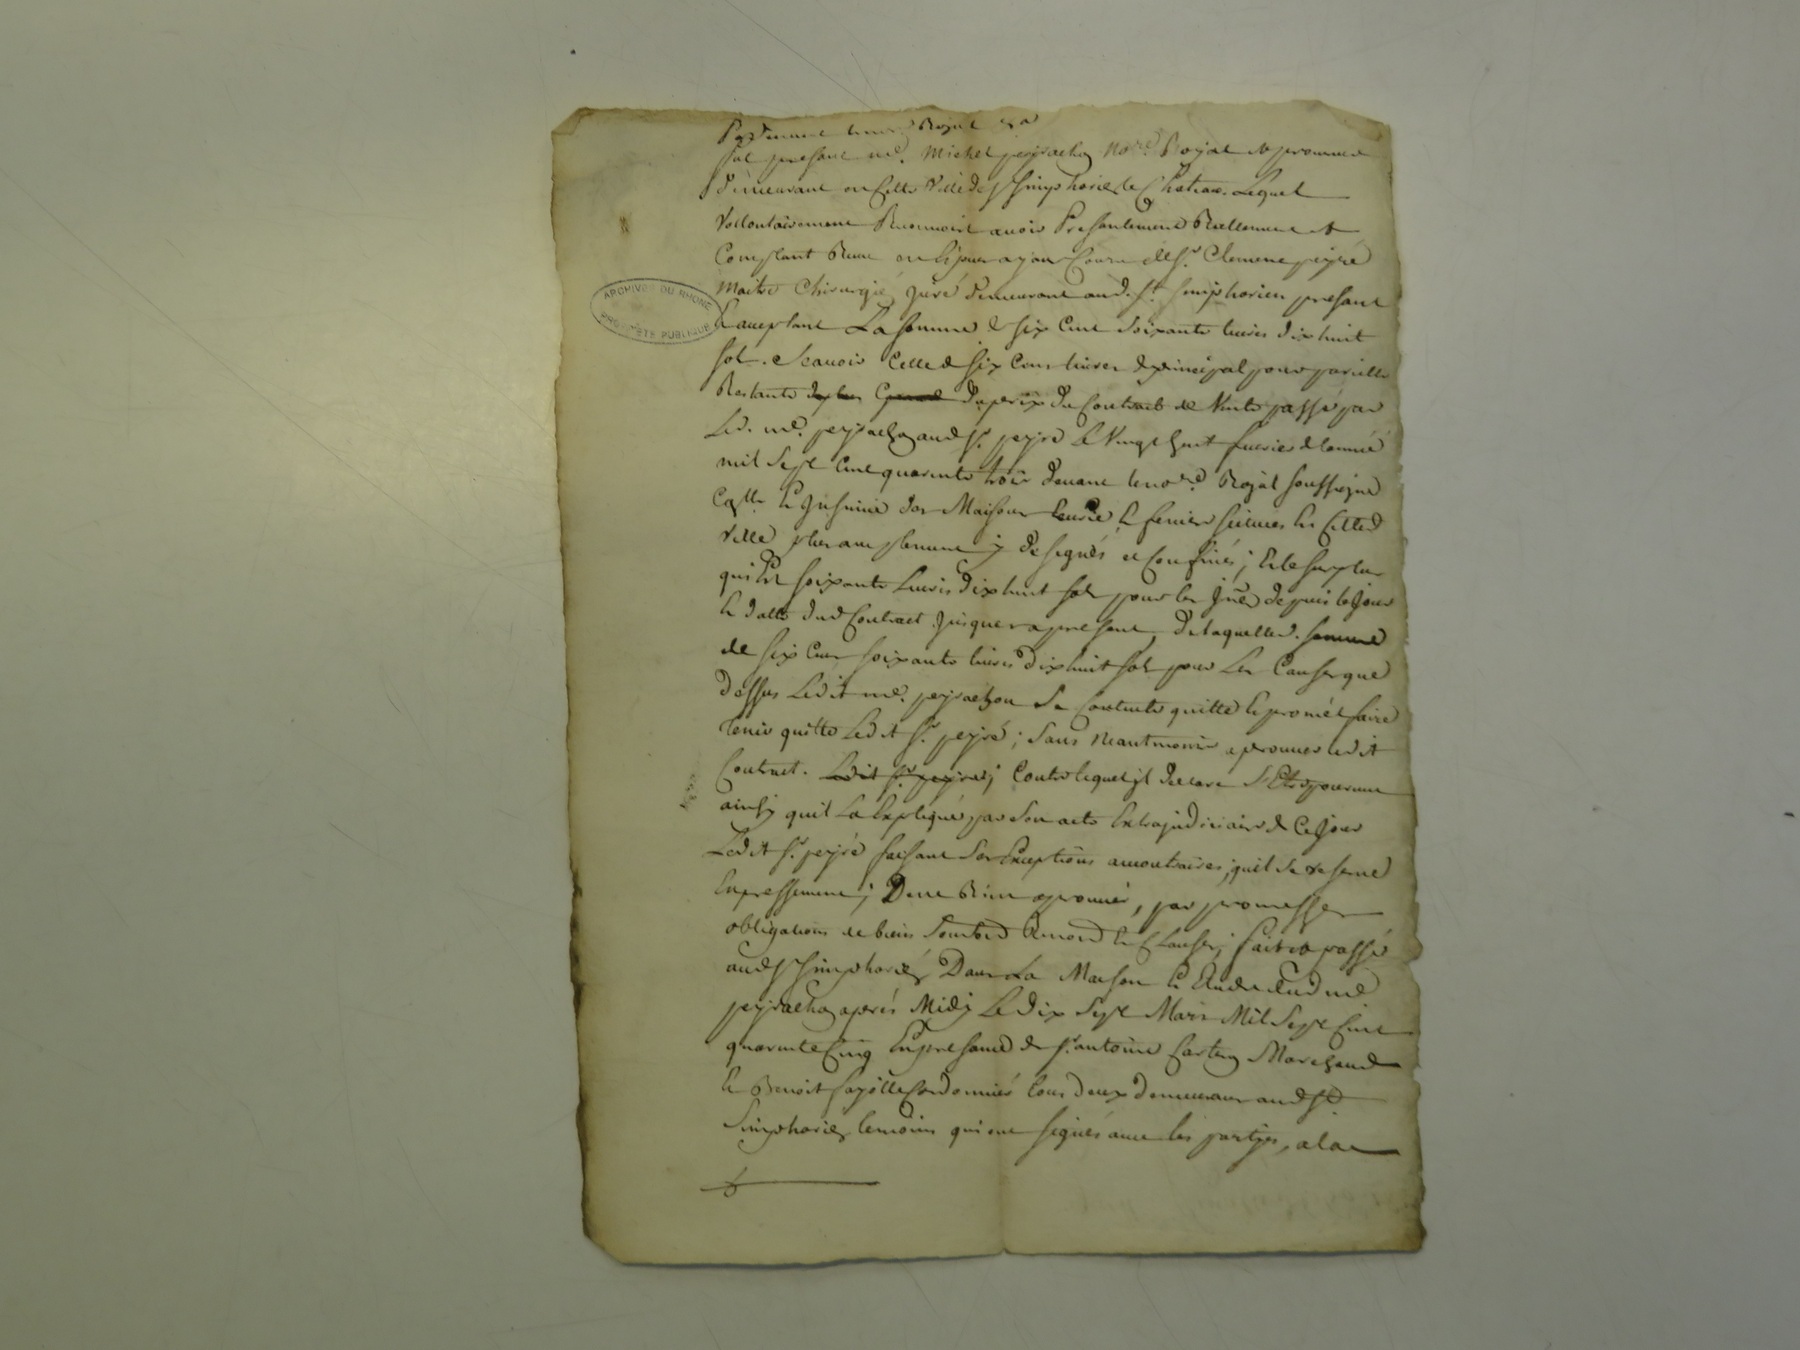 Pardevant le no.re Royal &a
fut present me. Michel peyrachon No.re Royal et procureur
demeurant en cette Ville de st simphorien le Chateau. Lequel
Vollontairement Reconnoist avoir Presentement Reellement et
Comptant Receu en Especes ayant Cours de sr. Clement peyré
Maitre Chirurgié juré demeurant aud. st. simphorien present
ARCHIVES DU RHONE
PROPRIÉTÉ PUBLIQUE
& acceptant La somme de six cent soixante livres dix huit
sols. Scavoir Celle de six Cens livres de principal pour pareille
Restante du prix du Contract de Vente passé par
Led. me. peyrachon aud sr. peyré Le Vingt huit fevrier de l'année
mil Sept Cent quarante trois devant le no.re Royal soussigné
des Maisons fenier scitués en cetted
Ville plus amplement y designés et Confinés; Et le surplus
qui Est soixante Livres dix huit sols pour les depuis le Jour
& datte dud Contract jusques a present, de laquelle d. somme
de six Cent soixante livres dix huit sols pour Les Causes que
dessus Ledit me. peyrachon Se Contente quitte & promet faire
tenir quitte Ledit sr. peyré; sans neantmoins aprouver ledit
Contract. Ledit sr. peyré; Contre lequel il declare S'Etre pourveu
ainsy quil La Expliqué par Son acte Extrajudiciaire de Ce jour
Ledit sr. peyré faisant Ses Exceptions au contraire, quil Se reserve
Expressement; Dene Rien aprouver, par promesses
obligations de biens & Clauses; fait et passé
aud st simphorien Dans La Maison & Etude dud me
peyrachon aprés Midy Le dix Sept Mars Mil Sept Cent
quarante Cinq En presence de sr. antoine Marchand
& Benoit fayolle Cordonnier tous deux demeurant aud st
Simphorien temoins qui ont signés avec les partyes, a la